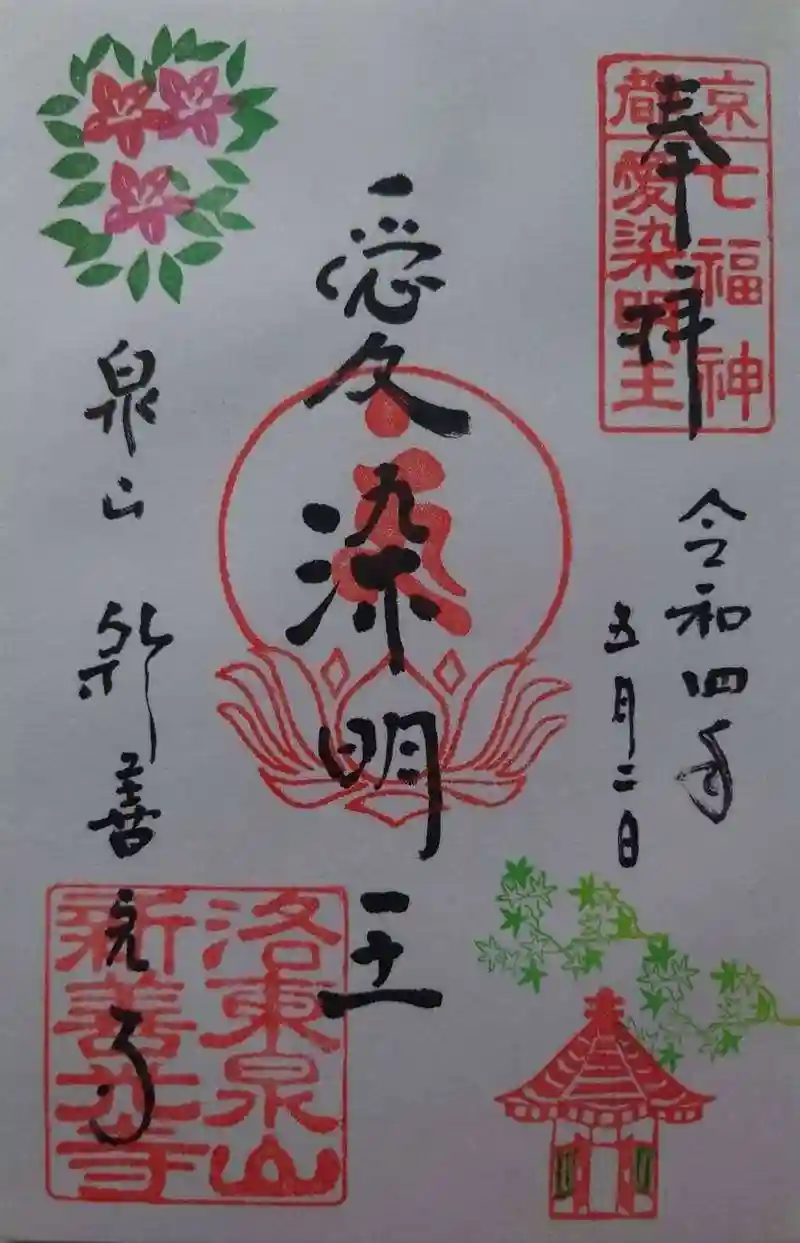 奉拝
京都
七福神
愛染明王
令和四年
五月二日
愛染明王
泉山 新善光寺
洛東泉山
新善光寺